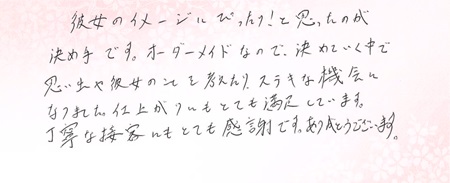 彼女のイメージにぴったり!と思ったのが
決め手です。オーダーメイドなので、決めていく中で
思い出や彼女のことを考えたり、ステキな機会に
なりました。仕上がりにもとても満足しています。
丁寧な接客にもとても感謝です。ありがとうございます。